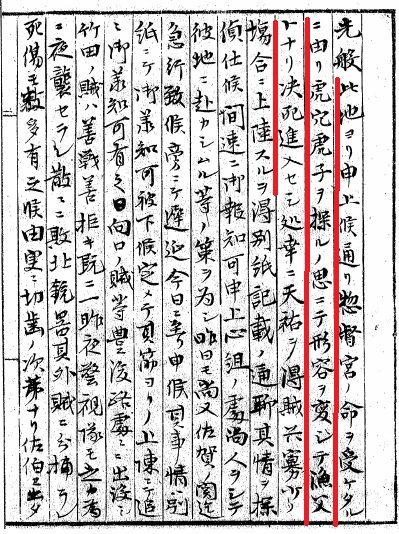 先般此地ヨリ申上候通リ惣督宮 命ヲ受ケタル
ニ由リ虎穴虎子ヲ探ルノ思ニテ形容ヲ変シテ漁父
トナリ決死進入セシ処幸ニ天祐ヲ得賊兵寡少ノ
場合ニ上陸スルヲ得別紙記載ノ通聊其情ヲ探
偵仕候間速ニ御報知可申上心組ノ處尚人ヲシテ
彼地ニ赴カシムル等ノ策ヲ為シ昨日モ尚又佐賀ノ関迄
急行致候旁ニテ遅延今日ニ至リ申候其事情ハ別
紙ニテ御承知可被下候定メテ其筋ヨリノ上陳ニテ追
ニ御承知可有之日向口ノ賊等豊後路處ニ出没シ
竹田ノ賊ハ善戦善拒キ既ニ一昨夜警視隊モ之カ為
ニ夜襲セラレ散ニ敗北銃器其外賊ニ分捕ラ
死傷モ数多有之候由実ニ切歯ノ次第ナリ佐伯ニ出タ